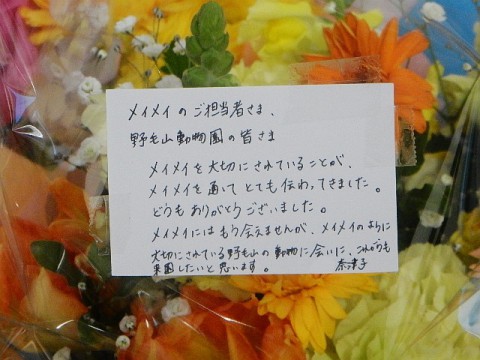 メイメイのご担当者さま、
野毛山動物園の皆さま
メイメイを大切にされていることが、
メイメイを通いてとても伝わってきました。
どうもありがとうございました。
メイメイにはもう会えませんが、メイメイのように
大切にされている野毛山の動物に会いに、これからも
来園したいと思います。
奈津子